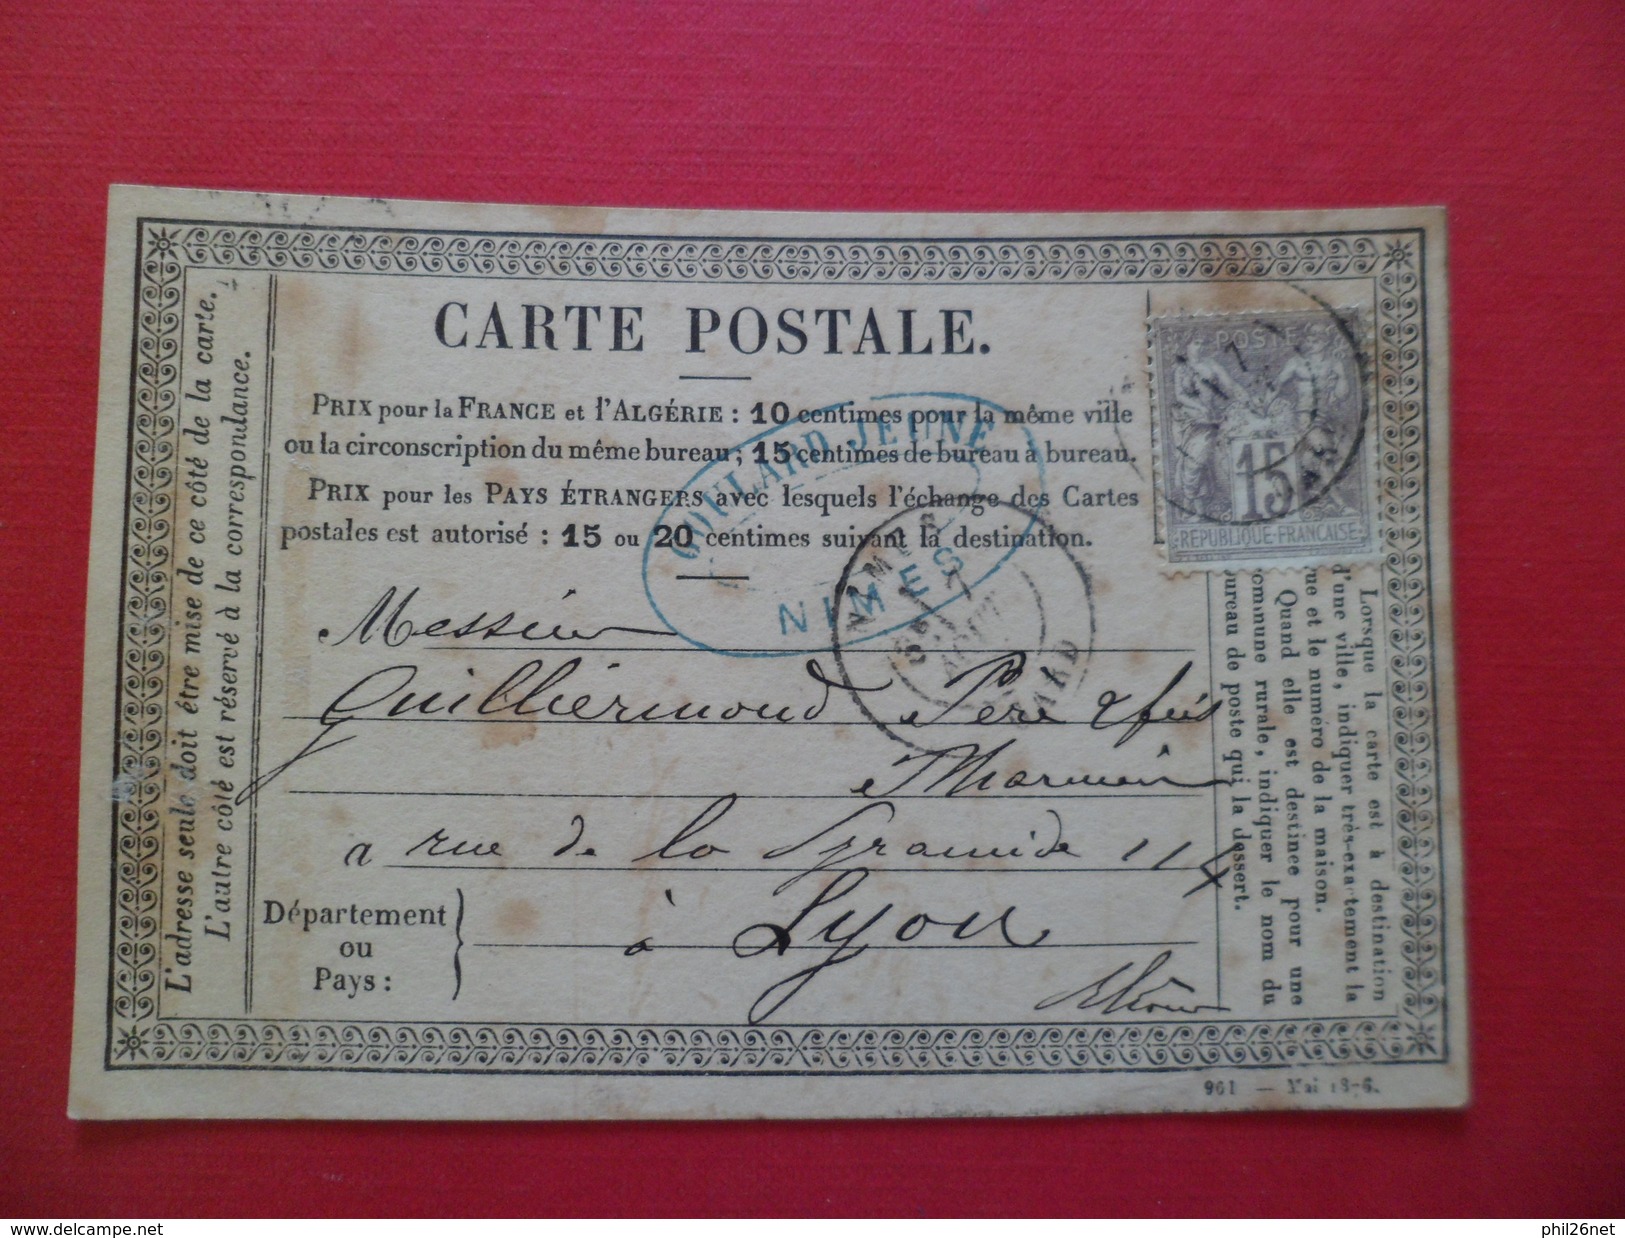 CARTE POSTALE.
PRIX pour la FRANCE et l'ALGÉRIE : 10 centimes pour la même ville
ou la circonscription du même bureau ; 15 centimes de bureau à bureau.
PRIX pour les PAYS ÉTRANGERS avec lesquels l'échange des Cartes
postales est autorisé : 15 ou 20 centimes suivant la destination.
GOULARD JEUNE
NIMES
NIMES
GARD
POSTE
15
REPUBLIQUE FRANÇAISE
Messieurs
Guilliermond Père & fils
a rue de la Pyramide 114
Département
ou
Pays :
à Lyon
Rhône
L'adresse seule doit être mise de ce côté de la carte.
L'autre côté est réservé à la correspondance.
Lorsque la carte est à destination
d'une ville, indiquer très-exactement la
rue et le numéro de la maison.
Quand elle est destinée pour une
commune rurale, indiquer le nom du
bureau de poste qui la dessert.
961 — Mai
delcampe.net
phil26net